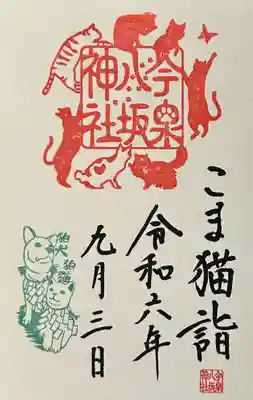 今泉
八坂
神社
こま猫詣
令和六年
九月三日
狛犬 狛猫
今泉
八坂
神社